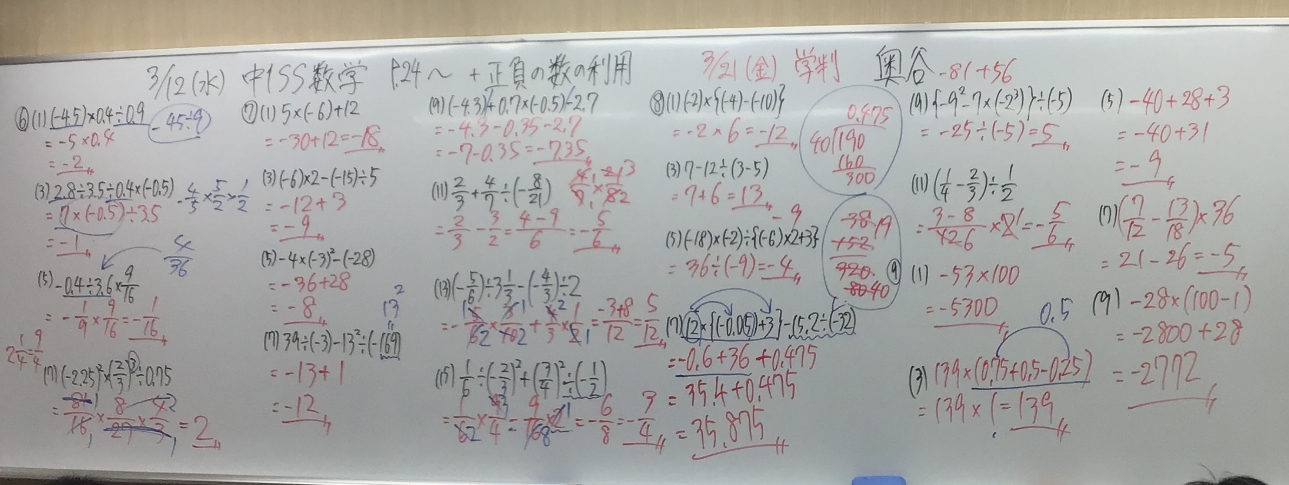 3/12(水) 中1SS数学 P.24〜 +正負の数の利用 3/21(金) 学判 奥谷
⑥(1)(-4.5)×0.4÷0.9
-45÷9
= -5×0.4
= -2
(3) 2.8÷3.5÷0.4×(-0.5)
-4/5×5/2×1/2
= 7×(-0.5)÷3.5
= -1
4/36
(5) -0.4÷3.6×9/16
= -1/9×9/16=-1/16
2 1/4=9/4
(7)(-2.25)²×(2/3)³÷0.75
= 81/16×8/27×4/3=2
⑦(1) 5×(-6)+12
= -30+12=-18
(3)(-6)×2-(-15)÷5
= -12+3
= -9
(5) -4×(-3)²-(-28)
= -36+28
= -8
13²
(7) 39÷(-3)-13²÷(-169)
= -13+1
= -12
(9)(-4.3)+0.7×(-0.5)-2.7
= -4.3-0.35-2.7
= -7-0.35=-7.35
(11) 2/3+4/7÷(-8/21)
= 2/3-3/2=4-9/6=-5/6
(13)(-5/6)÷3 1/3-(-4/3)÷2
= -5/6×3/10+4/3×1/2=-3+8/12=5/12
(15) 1/6÷(-2/3)²+(3/4)²÷(-1/2)
= -6/8=-3/4
⑧(1)(-2)×{(-4)-(-10)}
= -2×6=-12
0.475
40)190
160
300
(3) 7-12÷(3-5)
= 7+6=13
-9
(5)(-18)×(-2)÷{(-6)×2+3}
= 36÷(-9)=-4
(7) 12×{(-0.05)+3}-15.2÷(-32)
= -0.6+36+0.475
= 35.4+0.475
= 35.875
-81+56
(9){-9²-7×(-2³)}÷(-5)
= -25÷(-5)=5
(11)(1/4-2/3)÷1/2
= 3-8/12×2=-5/6
⑨
(1) -53×100
= -5300
0.5
(3) 139×(0.75+0.5-0.25)
= 139×1=139
(5) -40+28+3
= -40+31
= -9
(7)(7/12-13/18)×36
= 21-26=-5
(9) -28×(100-1)
= -2800+28
= -2772